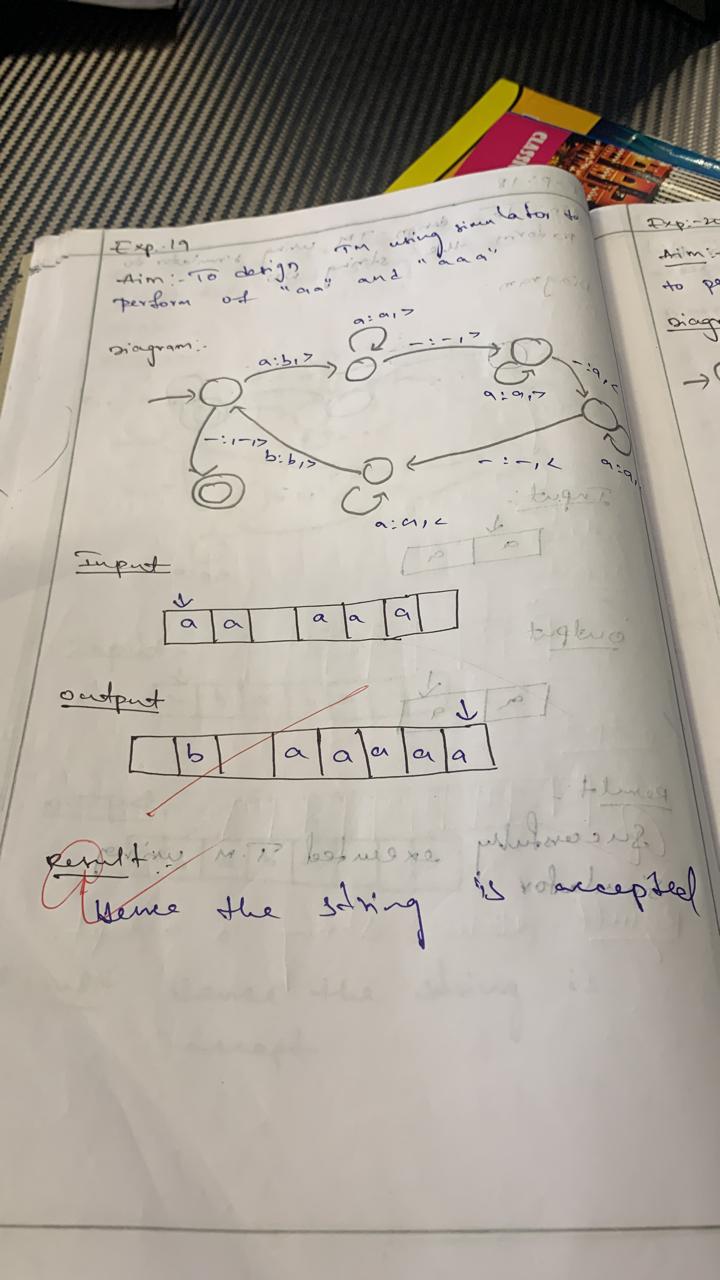 CLASS
Exp:-19
Aim:- To design TM using simulator to
perform of "aa" and "aaa"
Diagram:-
a:a,>
a:b,>
-:-,>
a:a,>
-:a,<
-:-,>
b:b,>
-:-,<
a:a,
a:a,<
Input
a a a a a
Output
b a a a a a
Result:-
Hence the string is accepted
Exp:-20
Aim:-
to pe
Diagr